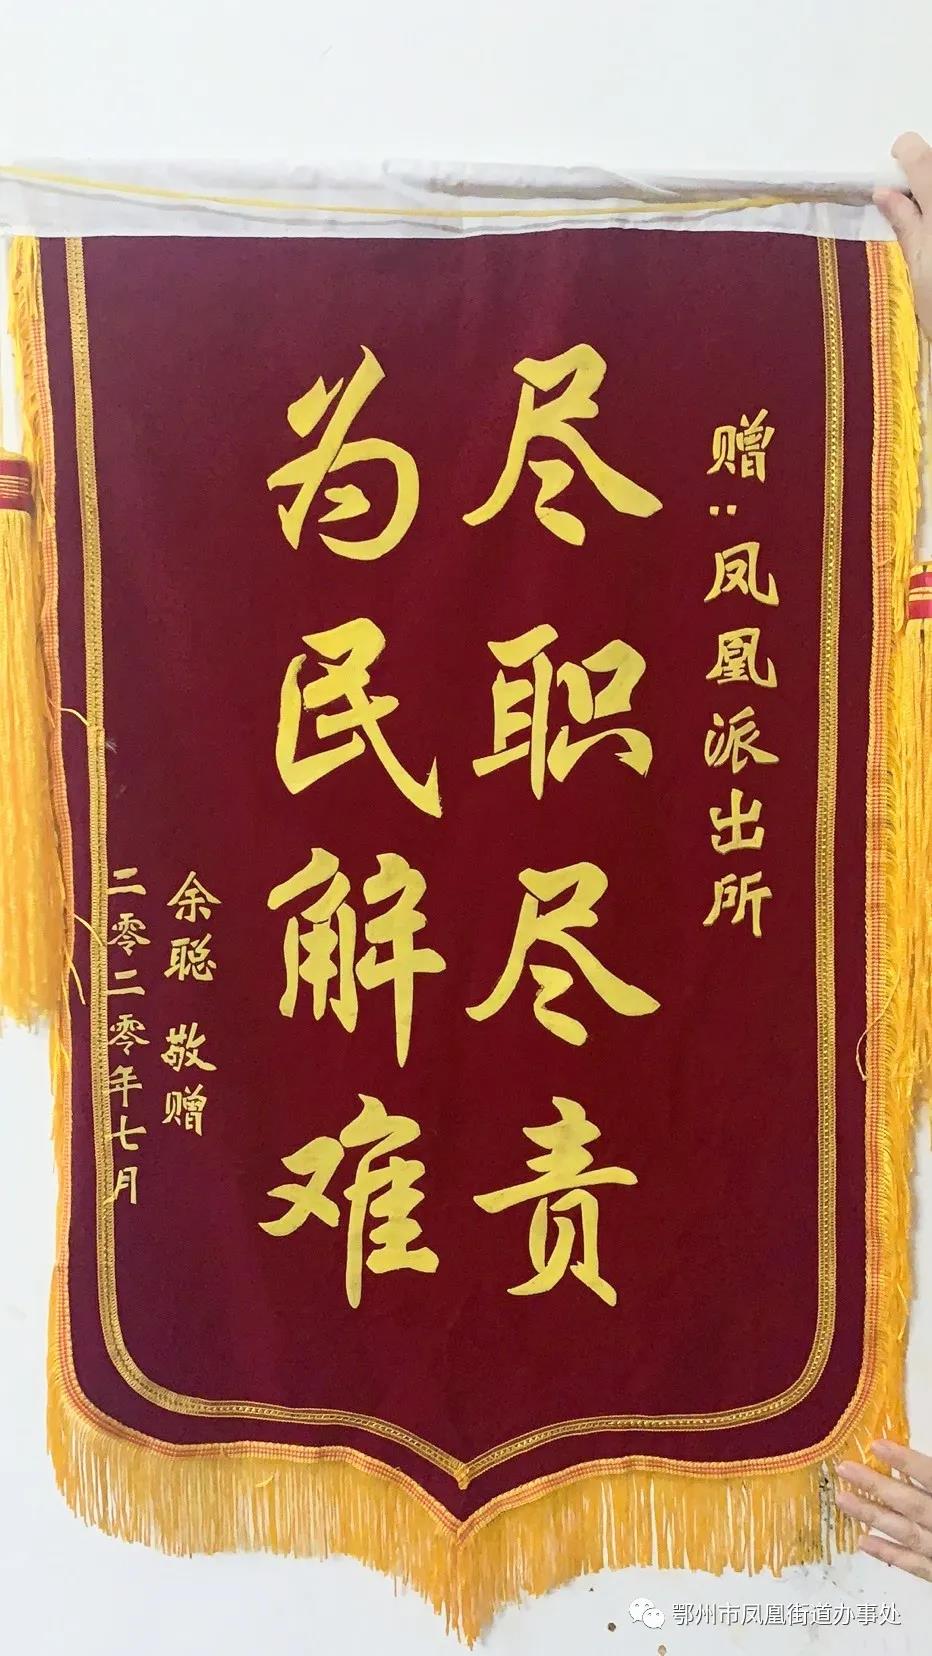 赠:凤凰派出所
尽职尽责
为民解难
余聪 敬赠
二零二零年七月
鄂州市凤凰街道办事处